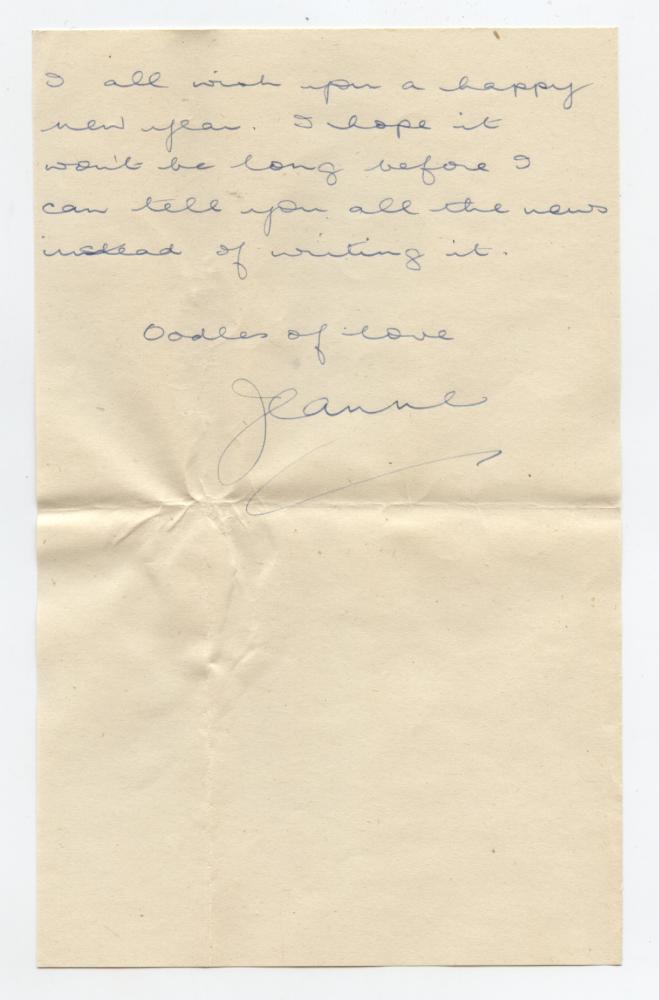 I all wish you a happy
new year. I hope it
won't be long before I
can tell you all the news
instead of writing it.
Oodles of love
Jeanne